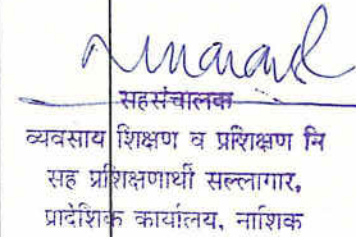 सहसंचालक
व्यवसाय शिक्षण व प्रशिक्षण नि
सह प्रशिक्षणार्थी सल्लागार,
प्रादेशिक कार्यालय, नाशिक